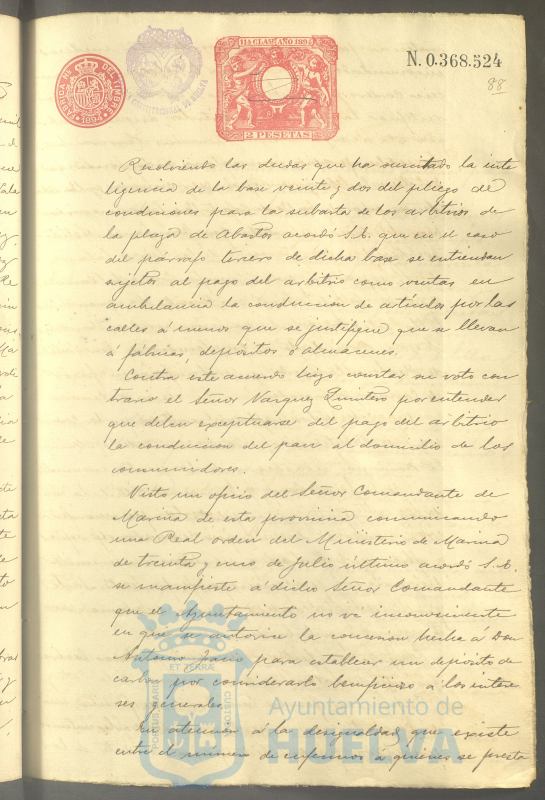 N. 0.368.524
88
FABRICA N. DEL TIMBRE
11ª CLASE AÑO 189
2 PESETAS
Resolviendo las dudas que ha suscitado la inte
ligencia de la base veinte y dos del pliego de
condiciones para la subasta de los arbitrios de
la plaza de Abastos acordó S.E. que en el caso
del párrafo tercero de dicha base se entiendan
sujetos al pago del arbitrio como ventas en
ambulancia la conduccion de artículos por las
calles á menos que se justifique que se llevan
á fábricas, depósitos ó almacenes.
Contra este acuerdo hizo constar su voto con
trario el Señor Vazquez Quintero por entender
que deben exceptuarse del pago del arbitrio
la conduccion del pan al domicilio de los
consumidores.
Visto un oficio del Señor Comandante de
Marina de esta provincia comunicando
una Real orden del Ministerio de Marina
de treinta y uno de Julio último acordó S.E.
se manifieste á dicho Señor Comandante
que el Ayuntamiento no vé inconveniente
en que se autorice la concesion hecha á Don
Antonio para establecer un depósito de
carbon por considerarlo beneficioso á los intere
ses generales.
En atencion á la desigualdad que existe
entre el número de enfermos á quienes se presta
PORTUS MARIS ET TERRÆ CUSTODIA
Ayuntamiento de
HUELVA